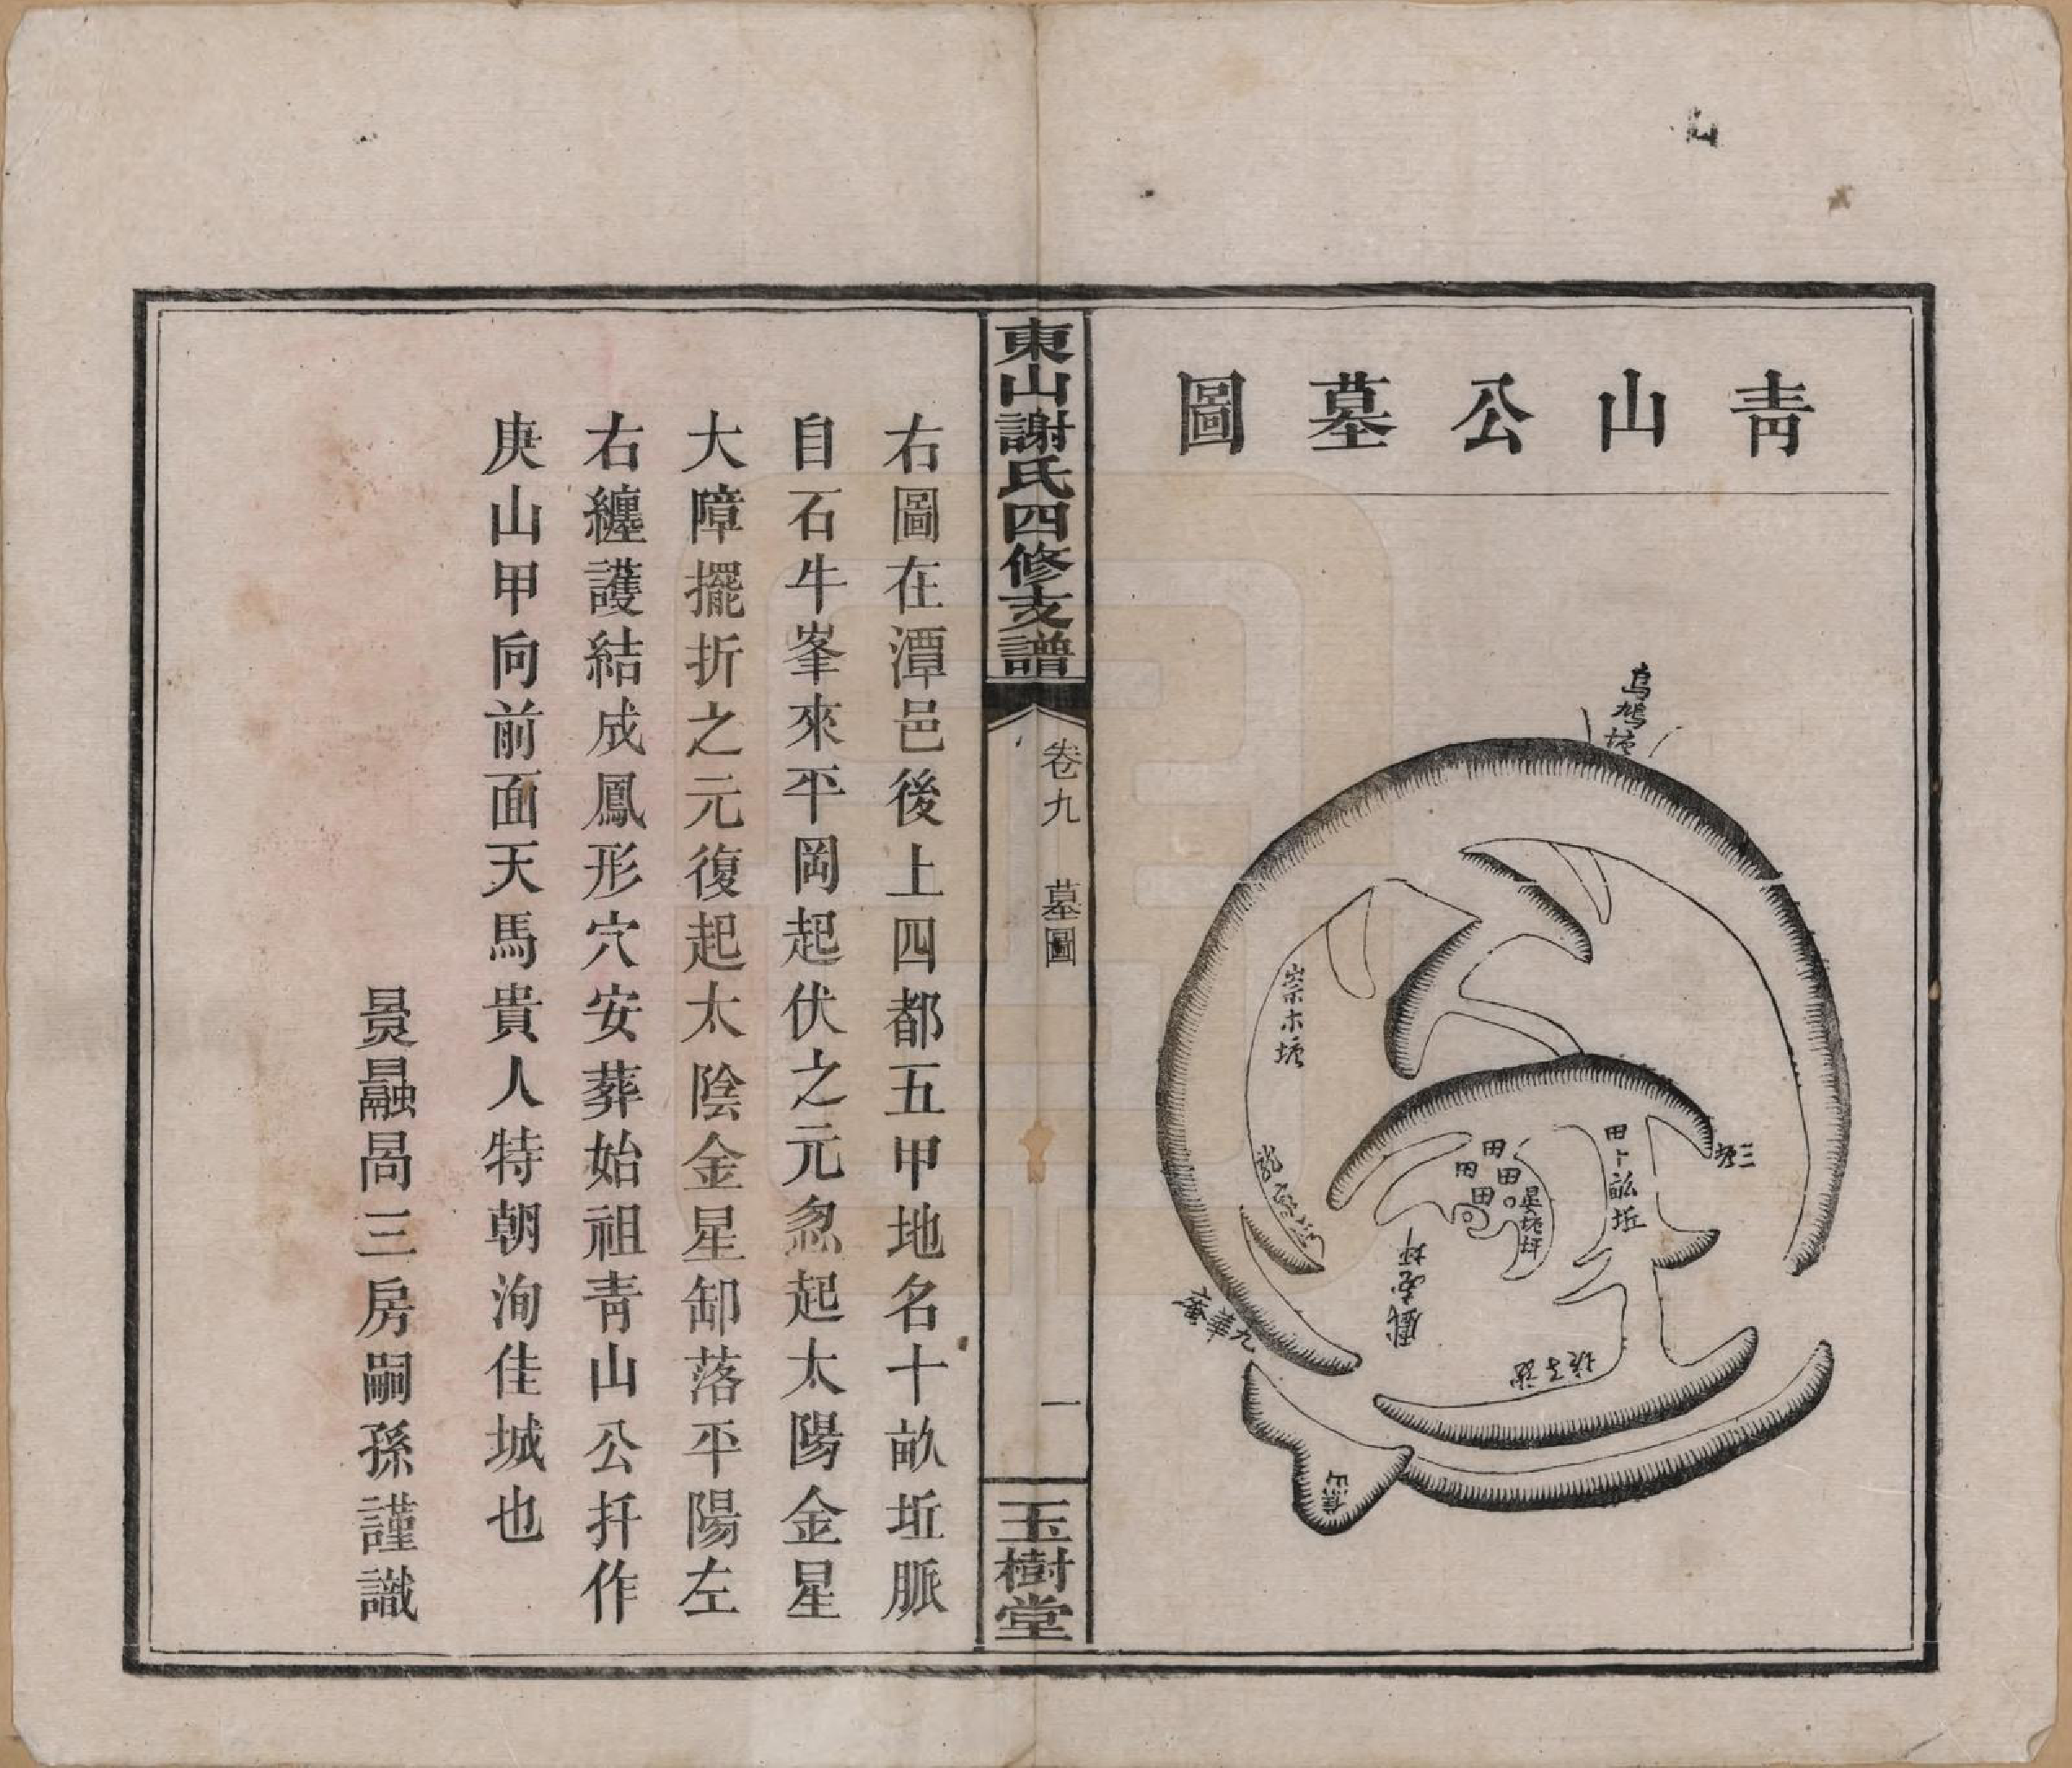 青山公墓圖
烏鳩塘
崇木塘
三塘
田卜畝坵
田
田
田
田
星塘坪
九華庵
東山謝氏四修支譜
卷九 墓圖
一
玉樹堂
右圖在潭邑後上四都五甲地名十畝坵脈
自石牛峯來平岡起伏之元忽起太陽金星
大障擺折之元復起太陰金星卸落平陽左
右纏護結成鳳形穴安葬始祖青山公扦作
庚山甲向前面天馬貴人特朝洵佳城也
三房嗣孫謹識